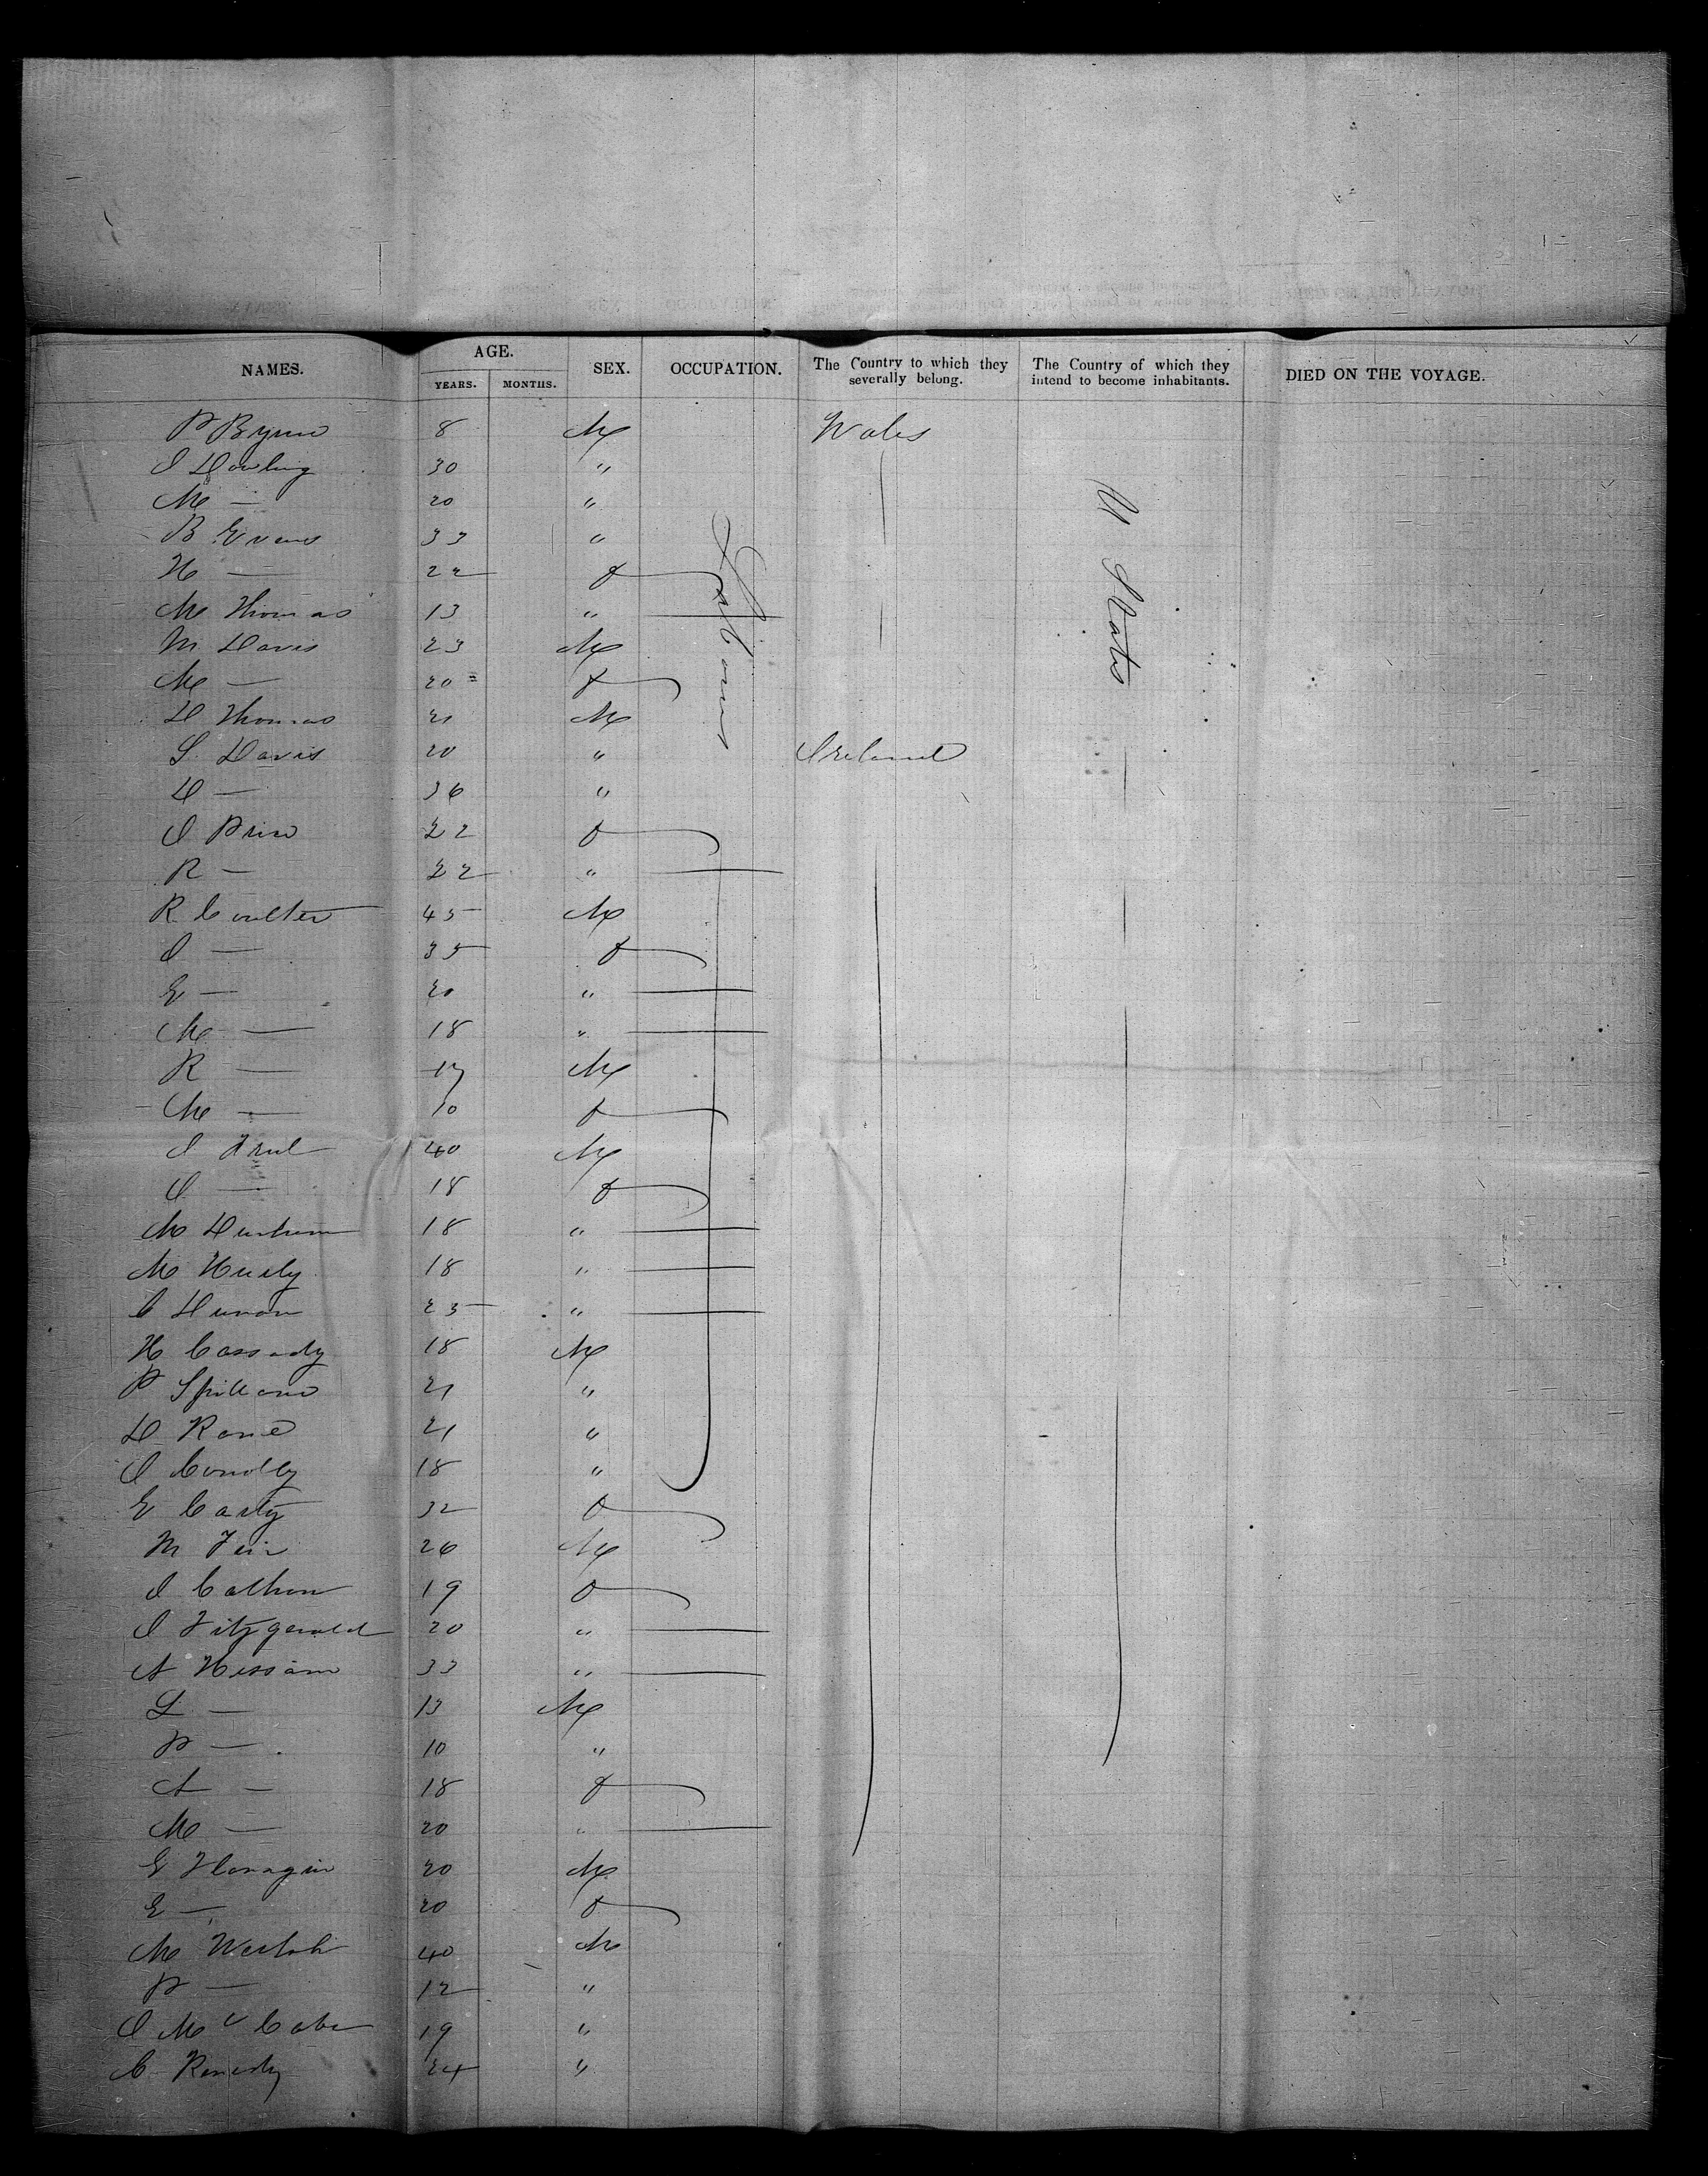 NAMES. AGE. YEARS. MONTHS. SEX. OCCUPATION. The Country to which they severally belong. The Country of which they intend to become inhabitants. DIED ON THE VOYAGE.
P Byrne 8 M Wales
J Dowling 30 "
M — 20 "
B Evans 33 "
H — 22 F
M Thomas 13 "
M Davis 23 M
M — 20 F
D Thomas 21 M
S Davis 20 " Ireland
D — 36 "
J Price 22 F
R — 22 "
R Coulter 45 M
J — 35 F
E — 20 "
M — 18 "
R — 17 M
M — 10 F
J 40 M
J — 18 F
M Durham 18 "
M 18 "
C 25 "
H Cassady 18 M
P Spillane 21 "
D Kane 21 "
J Conolly 18 "
E Carty 32 F
M 26 M
J Calhoun 19 F
J Fitzgerald 20 "
A Hessian 33 "
L — 13 M
P — 10 "
A — 18 F
M — 20 "
E Flanagin 20 M
E — 20 F
M 40 M
P — 12 "
J McCabe 19 "
C Kenedy 24 "
Labourers
U States